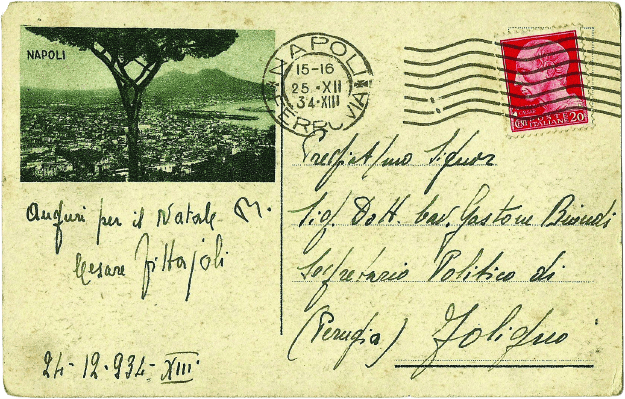 NAPOLI
NAPOLI
15-16
25.XII
34.XIII
FERROVIA
POSTE
ITALIANE
CENT 20
Auguri per il Natale
Cesare
24-12-934-XIII.
Pregiat/mo Signor
Sig. Dott. Cav. Gastone Biondi
Segretario Politico di
(Perugia) Foligno